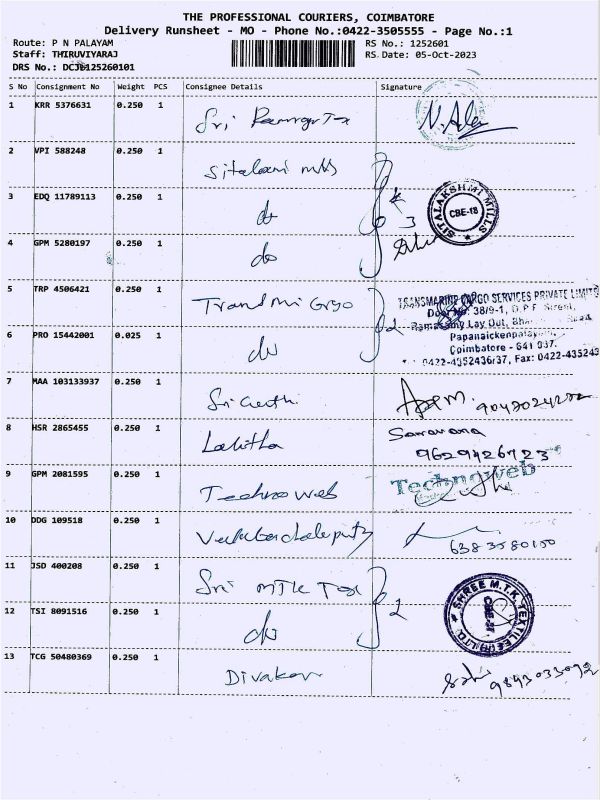 THE PROFESSIONAL COURIERS, COIMBATORE
Delivery Runsheet - MO - Phone No.:0422-3505555 - Page No.:1
Route: P N PALAYAM
RS No.: 1252601
Staff: THIRUVIYARAJ
RS Date: 05-Oct-2023
DRS No.: DCJB125260101
S No Consignment No Weight PCS Consignee Details Signature
1 KRR 5376631 0.250 1 Sri Tex
2 VPI 588248 0.250 1 mills
3 EDQ 11789113 0.250 1 do
3
SITALAKSHMI MILLS
CBE-18
4 GPM 5280197 0.250 1 do
5 TRP 4506421 0.250 1
TRANSMARINE CARGO SERVICES PRIVATE LIMIT
Door No. 38/9-1, D.P.F. Street,
Ramasamy Lay Out,
6 PRO 15442001 0.025 1 do 2
Papanaickenpalayam,
Coimbatore - 641 037.
0422-4352436/37, Fax: 0422-435243
7 MAA 103133937 0.250 1 Sri
8 HSR 2865455 0.250 1 Lalitha Saravana
9629426723
9 GPM 2081595 0.250 1 Technoweb Technoweb
10 DDG 109518 0.250 1
6383580150
11 JSD 400208 0.250 1 Sri MTK Tex
2
SHREE M.T.K. TEXTILE (P) LTD.
12 TSI 8091516 0.250 1 do
13 TCG 50480369 0.250 1 Divakar